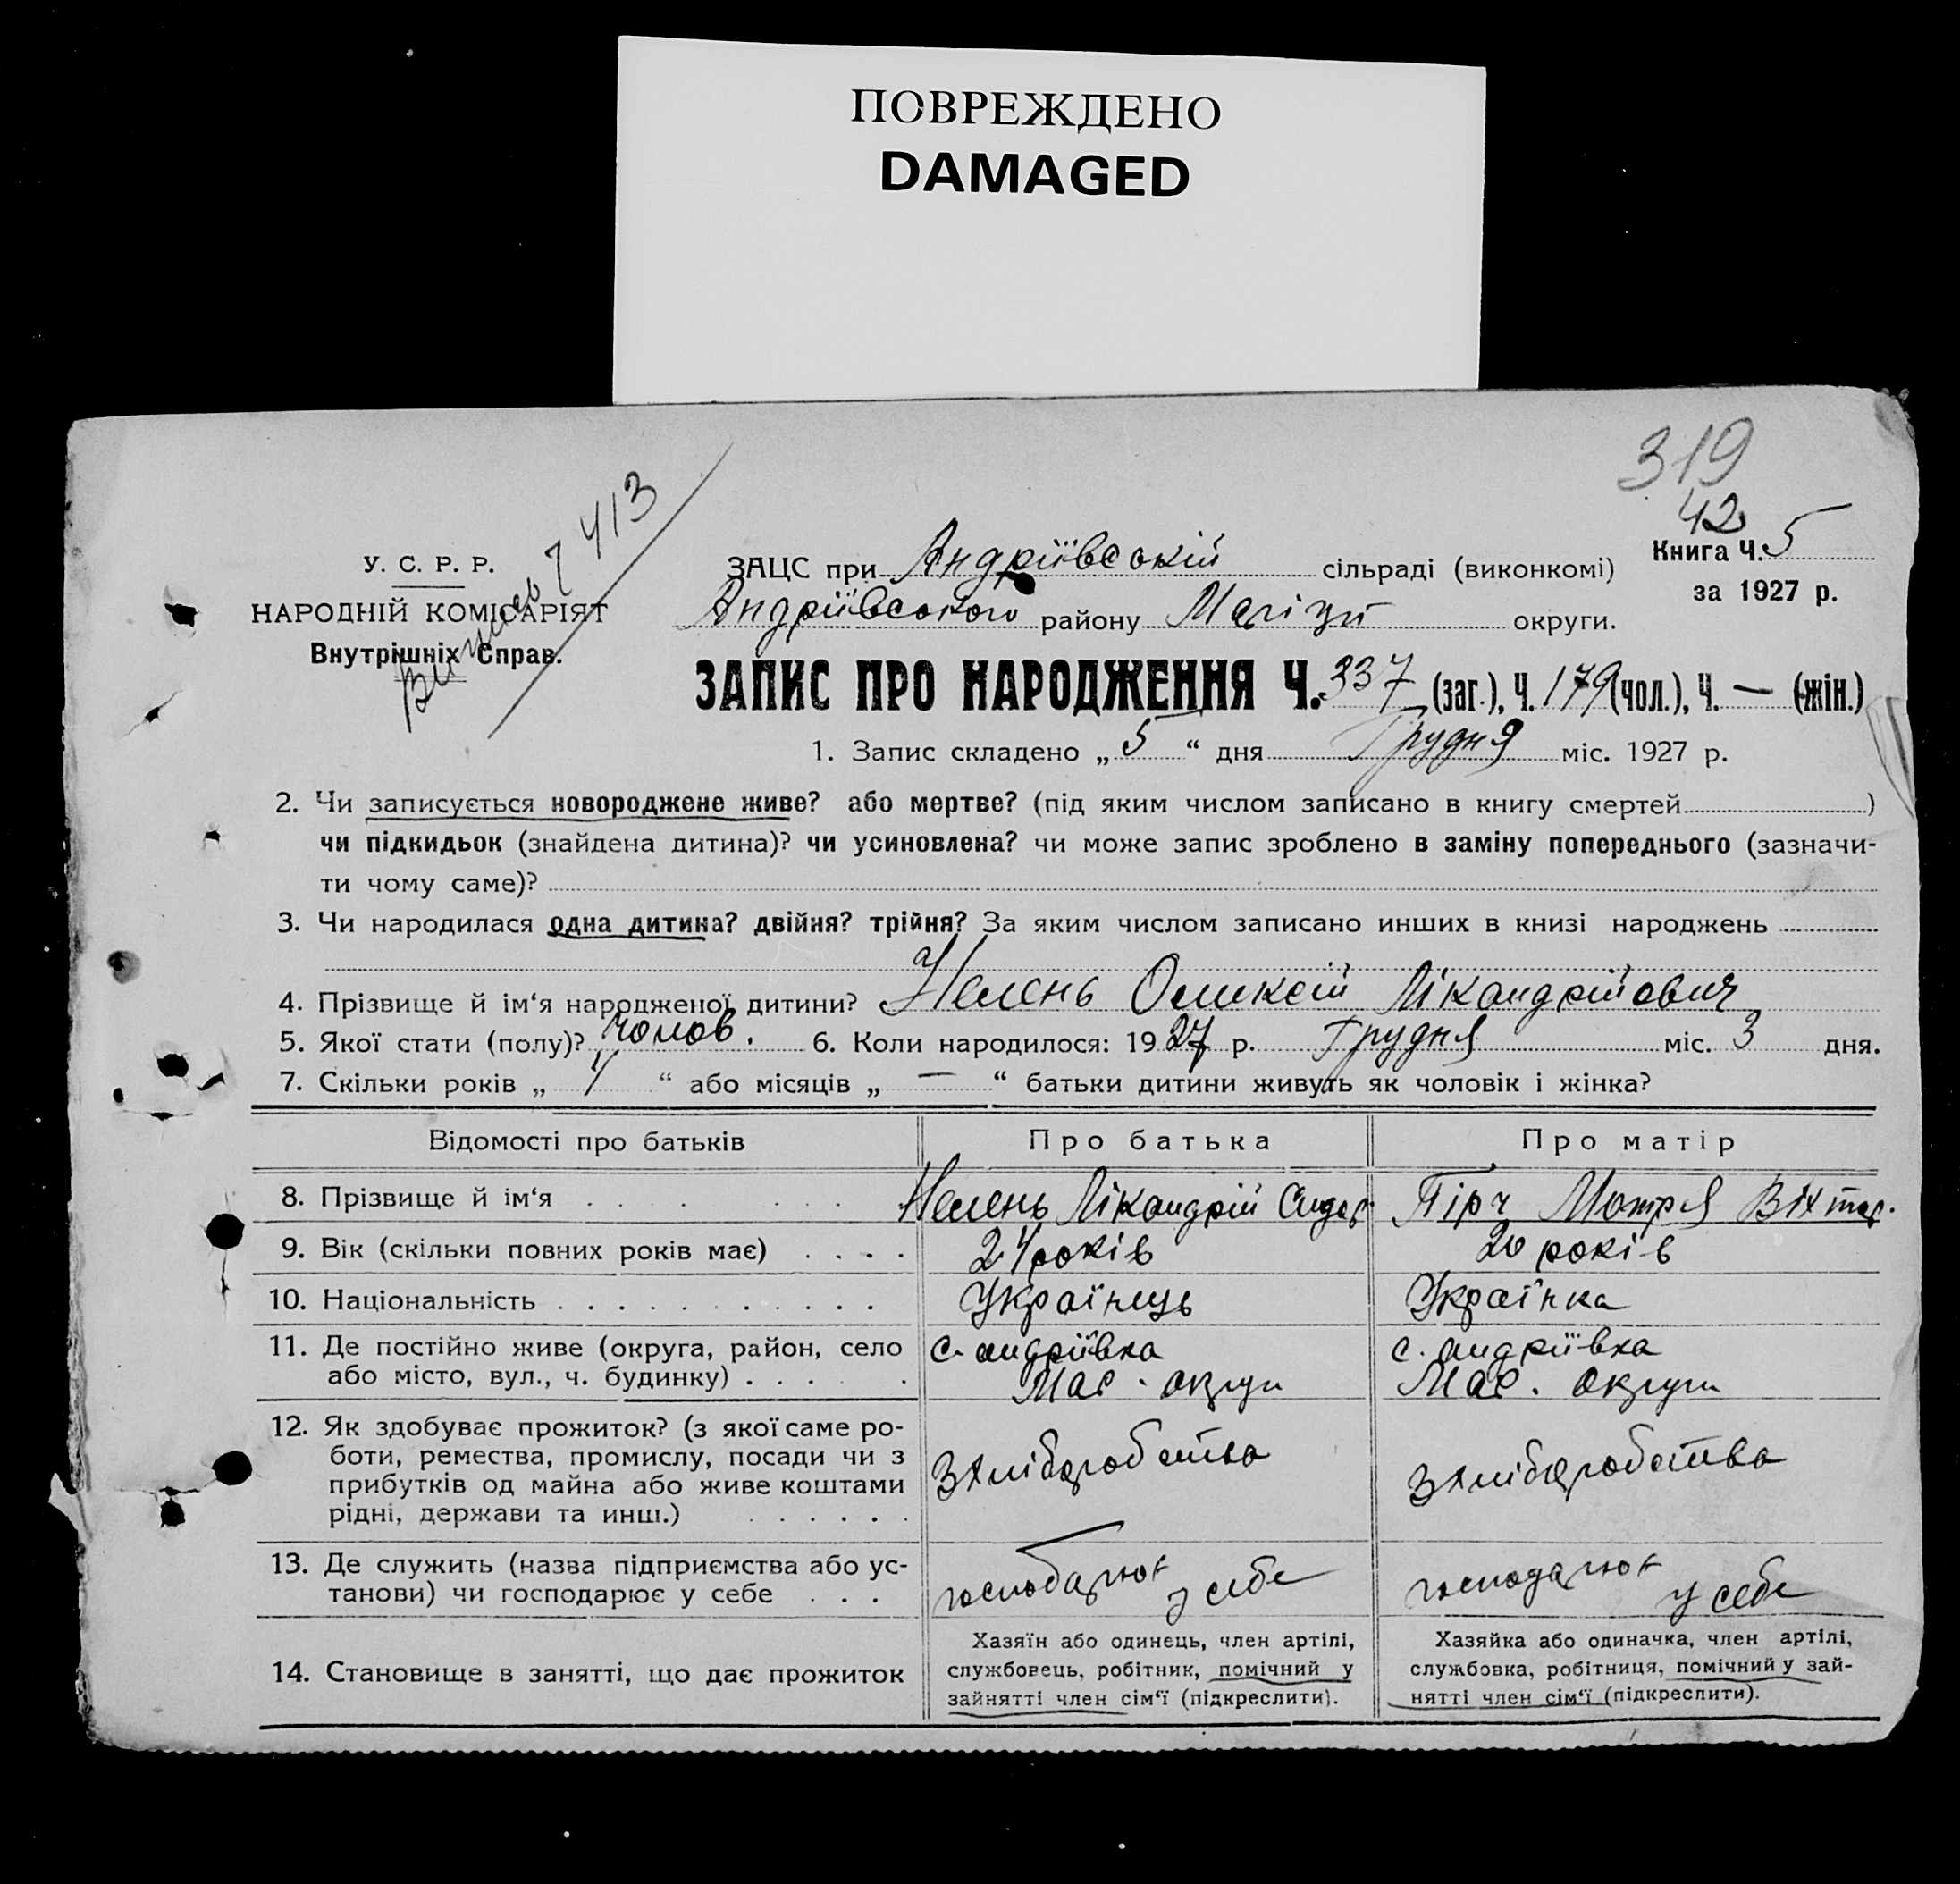 ПОВРЕЖДЕНО
DAMAGED
319
42
413
У. С. Р. Р.
НАРОДНІЙ КОМІСАРІЯТ
Внутрішніх Справ.
Книга Ч. 5
за 1927 р.
ЗАЦС при Андріївській сільраді (виконкомі)
Андріївського району округи.
ЗАПИС ПРО НАРОДЖЕННЯ Ч. 337 (заг.), Ч. 179 (чол.), Ч. — (жін.)
1. Запис складено „ 5 “ дня Грудня міс. 1927 р.
2. Чи записується новороджене живе? або мертве? (під яким числом записано в книгу смертей )
чи підкидьок (знайдена дитина)? чи усиновлена? чи може запис зроблено в заміну попереднього (зазначи-
ти чому саме)?
3. Чи народилася одна дитина? двійня? трійня? За яким числом записано инших в книзі народжень
4. Прізвище й ім‘я народженої дитини? Нелень Оликсій Лікандрійович
5. Якої стати (полу)? чолов. 6. Коли народилося: 1927 р. Грудня міс. 3 дня.
7. Скільки років „ 1 “ або місяців „ — “ батьки дитини живуть як чоловік і жінка?
Відомості про батьків Про батька Про матір
8. Прізвище й ім‘я Нелень Лікандрій Сидор. Пірч Мотря Віхтор.
9. Вік (скільки повних років має) 24 років 20 років
10. Національність Українець Українка
11. Де постійно живе (округа, район, село с. Андріївка с. Андріївка
або місто, вул., ч. будинку) Мар. округи Мар. округи
12. Як здобуває прожиток? (з якої саме ро-
боти, ремества, промислу, посади чи з З хліборобства З хліборобства
прибутків од майна або живе коштами
рідні, держави та инш.)
13. Де служить (назва підприємства або ус- господарює господарює
танови) чи господарює у себе у себе у себе
14. Становище в занятті, що дає прожиток
Хазяїн або одинець, член артілі,
службовець, робітник, помічний у
зайнятті член сім‘ї (підкреслити).
Хазяйка або одиначка, член артілі,
службовка, робітниця, помічний у зай-
нятті член сім‘ї (підкреслити).